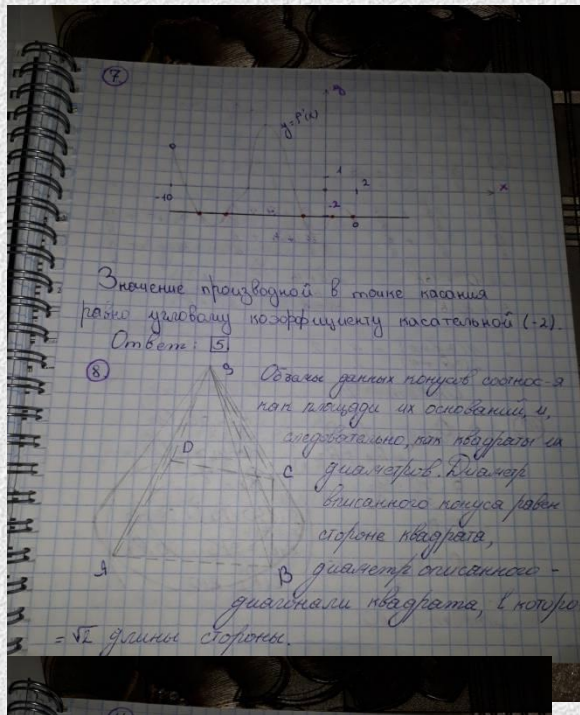 7
y
y=f'(x)
1
2
x
-10
-2
0
Значение производной в точке касания
равно угловому коэффициенту касательной (-2).
Ответ: 5
8
S
Объемы данных конусов соотнос-я
как площади их оснований, и,
следовательно, как квадраты их
D
диаметров. Диаметр
C
вписанного конуса равен
стороне квадрата,
A
B
диаметр описанного -
диагонали квадрата,
= √2 длины стороны.